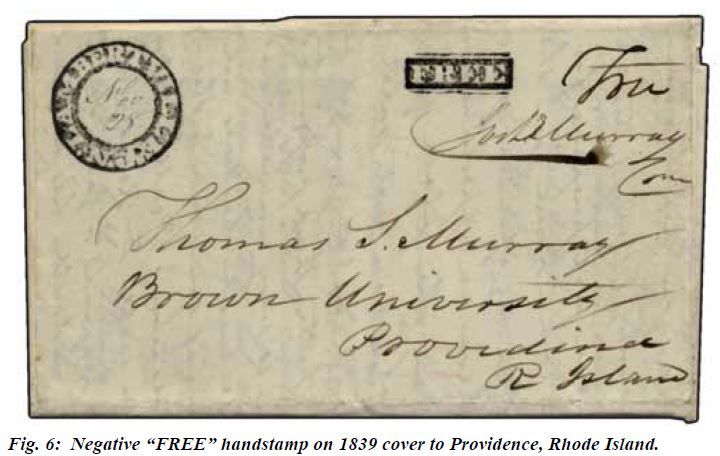 Nov
28
FREE
Free
Murray
Thomas S. Murray
Brown University
Providence
R Island
Fig. 6: Negative “FREE” handstamp on 1839 cover to Providence, Rhode Island.